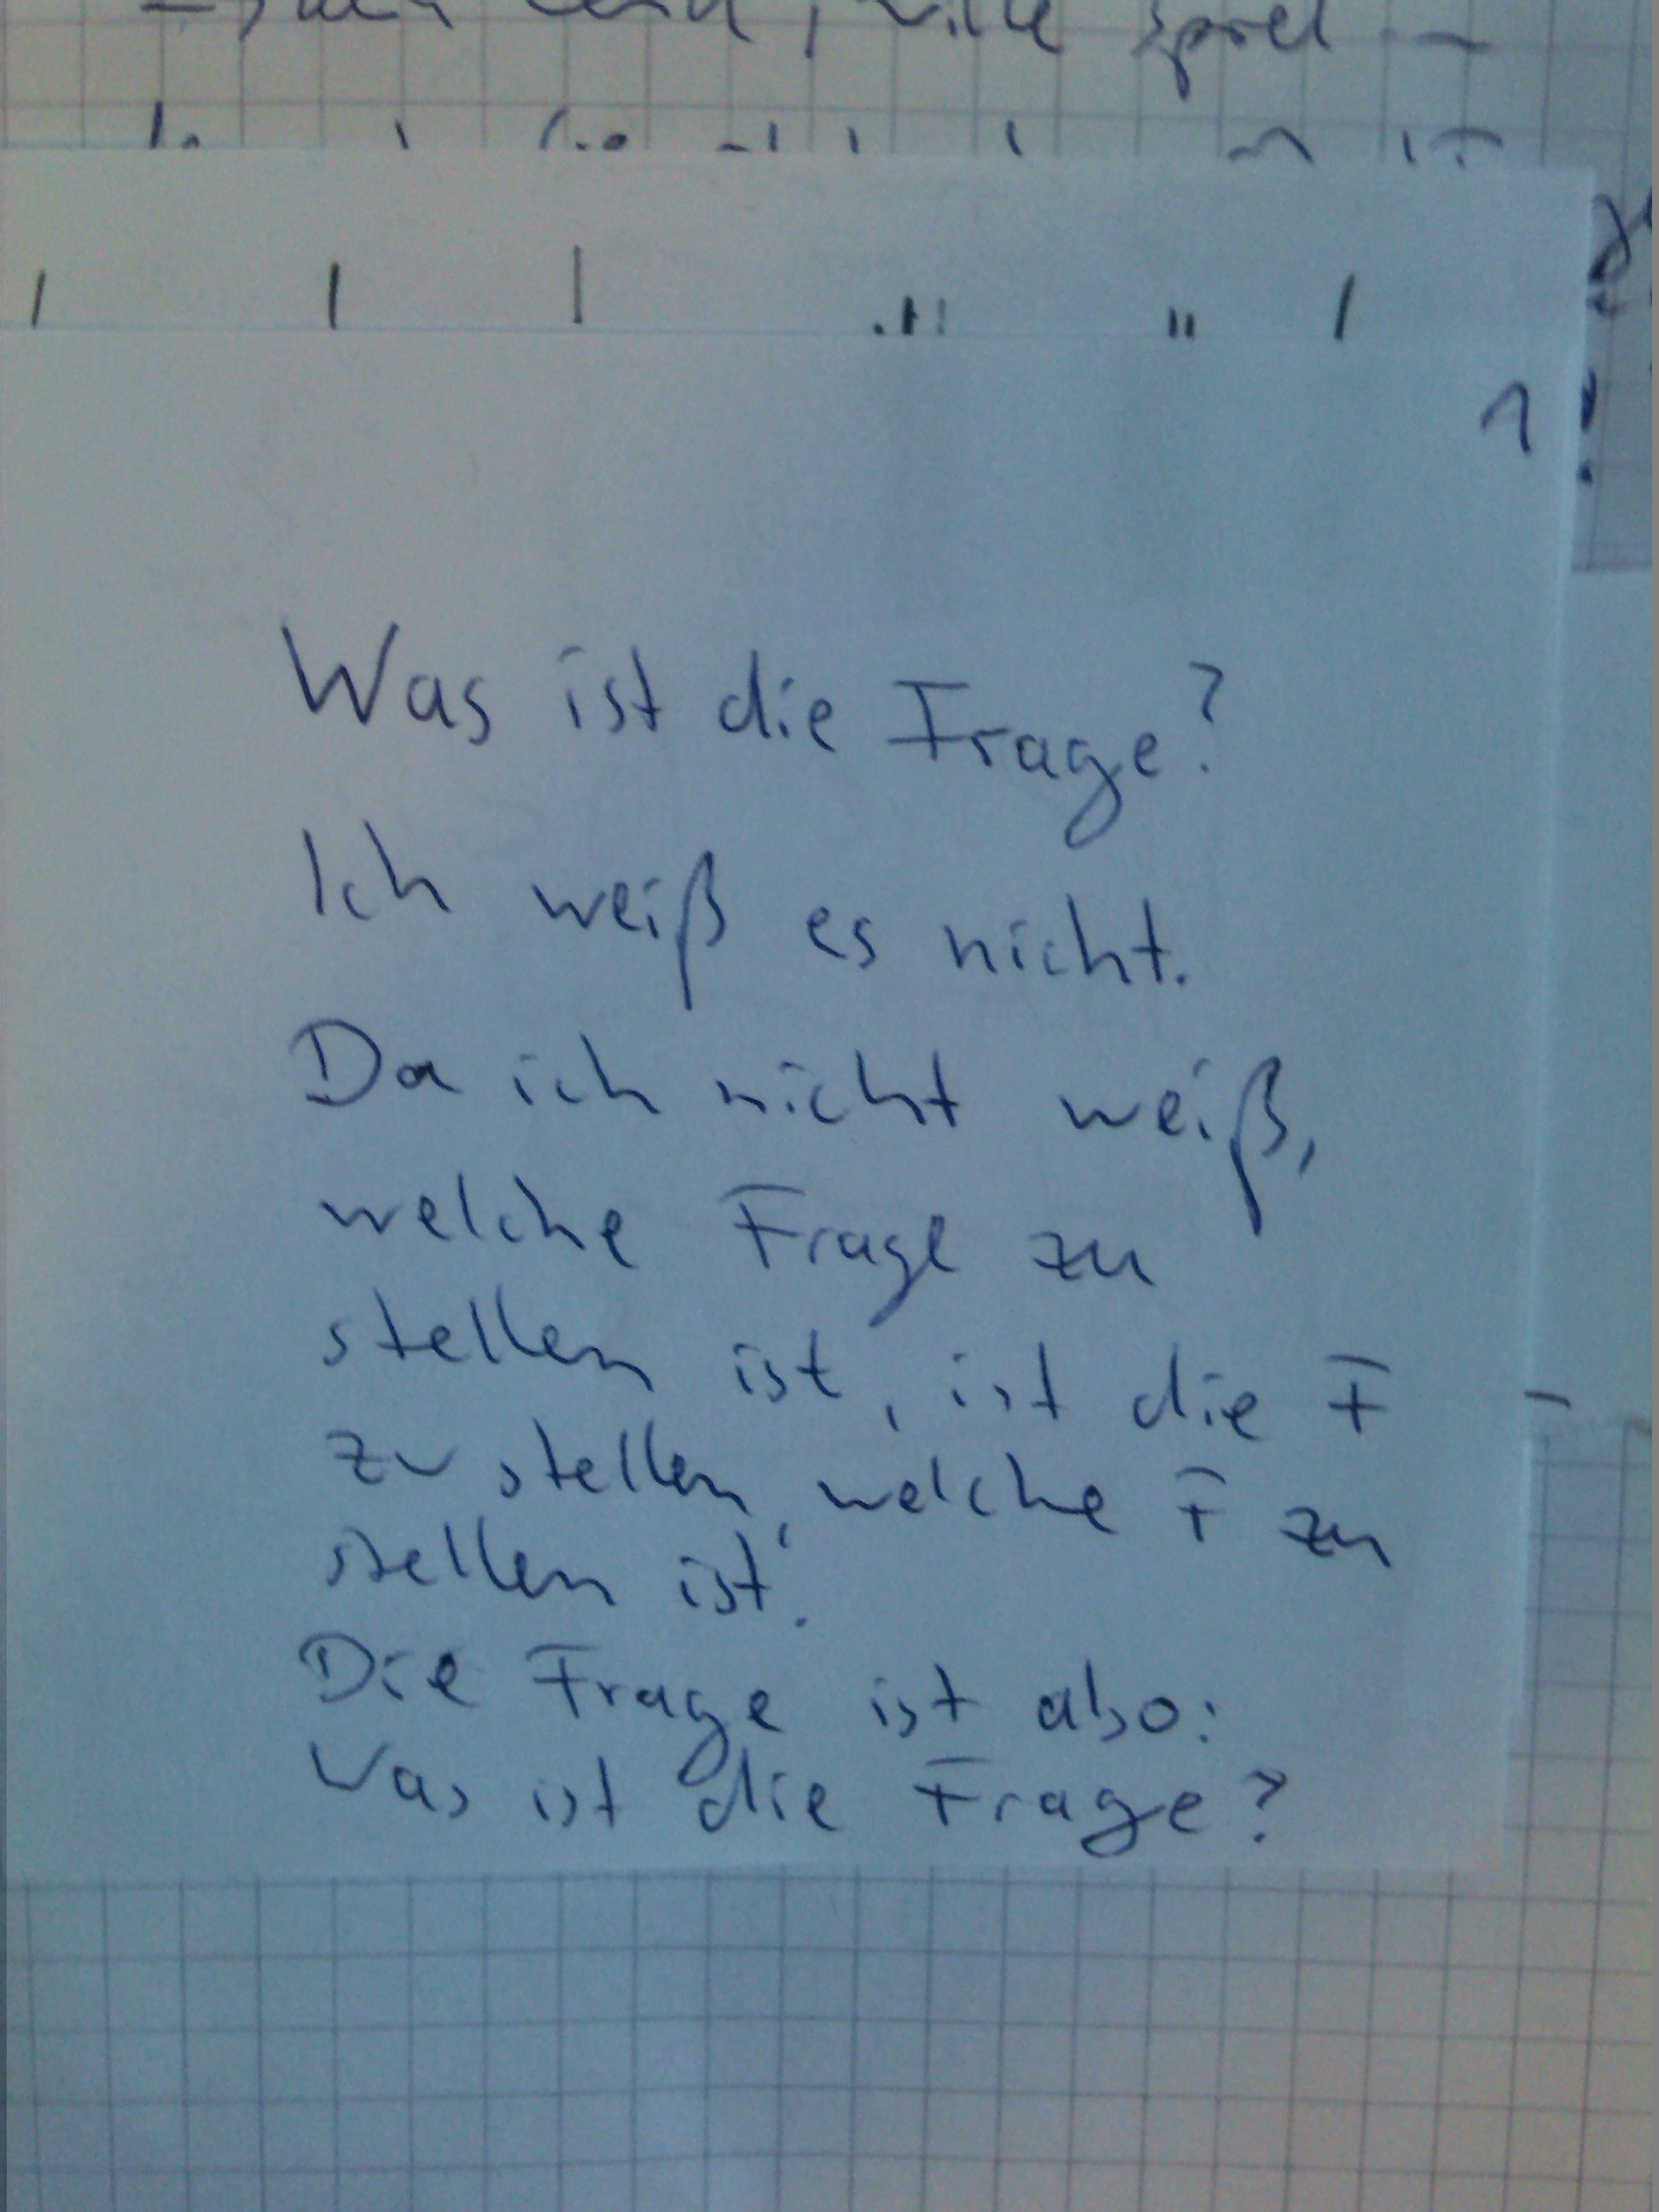 Spiel -
1
Was ist die Frage?
Ich weiß es nicht.
Da ich nicht weiß,
welche Frage zu
stellen ist, ist die F
zu stellen, welche F zu
stellen ist.
Die Frage ist also:
Was ist die Frage?